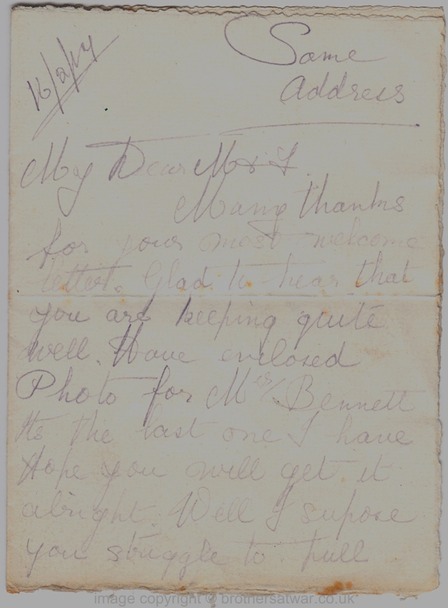 16/2/17
Same
address
My Dear M & F.
Many thanks
for your most welcome
letter. Glad to hear that
you are keeping quite
well. Have enclosed
Photo for Mrs Bennett
Its the last one I have
Hope you will get it
alright. Well I supose
you struggle to pull
image copyright © brothersatwar.co.uk